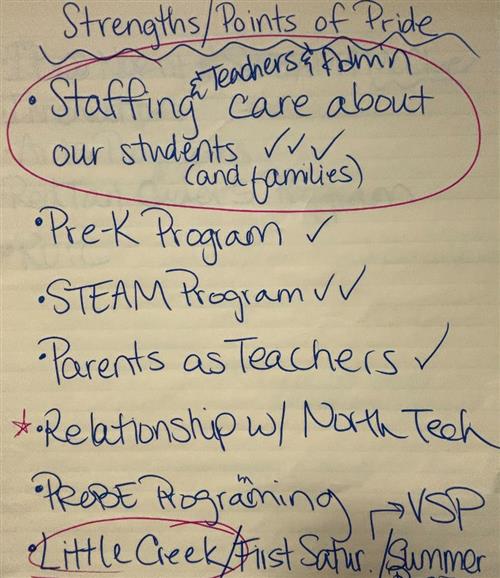 Strengths/Points of Pride
& Teachers & Admin
• Staffing care about
our students ✓✓✓
(and families)
• Pre-K Program ✓
• STEAM Program ✓✓
• Parents as Teachers ✓
☆ • Relationship w/ North Tech
• PROBE Programing
m
→ VSP
• Little Creek/First Satur./Summer